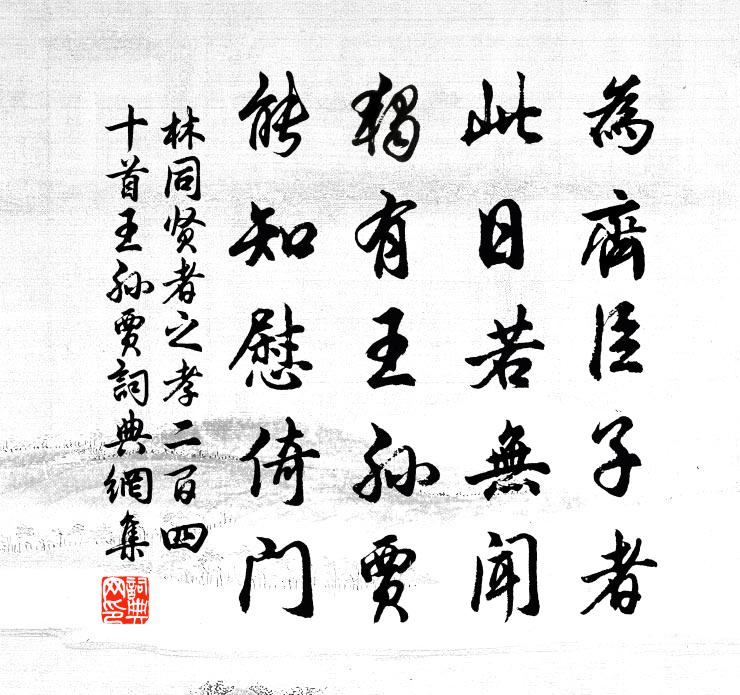 為齊臣子者
此日若無聞
獨有王孫賈
能知慰倚門
林同贤者之孝二百四
十首王孙賈詞典網集
詞典
网印